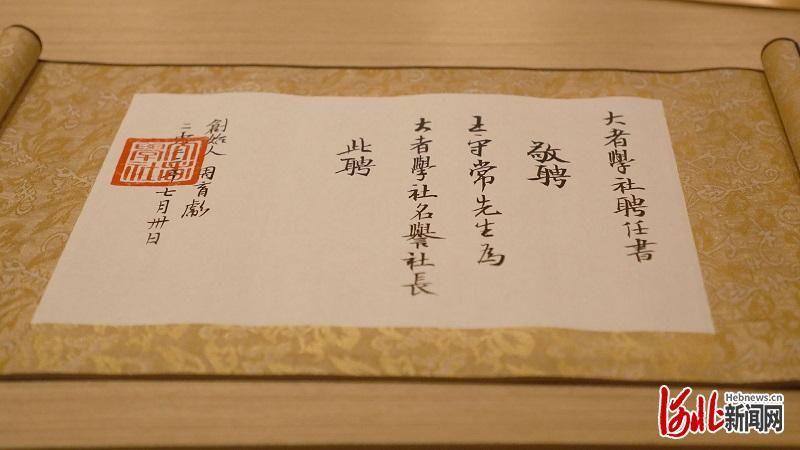 大者學社聘任書
敬聘
王守常先生為
大者學社名譽社長
此聘
創始人 周育
二 七月卅日
Hebnews.cn
河北新闻网